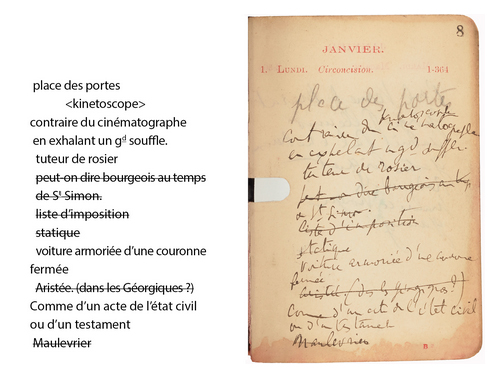 place des portes
<kinetoscope>
contraire du cinématographe
en exhalant un gᵈ souffle.
tuteur de rosier
peut-on dire bourgeois au temps
de Sᵗ Simon.
liste d’imposition
statique
voiture armoriée d’une couronne
fermée
Aristée. (dans les Géorgiques ?)
Comme d’un acte de l’état civil
ou d’un testament
Maulevrier
8
JANVIER.
1. LUNDI. Circoncision. 1-364
place des portes
kinetoscope
contraire du cinematographe
en exhalant un gd souffle.
tuteur de rosier
peut-on dire bourgeois au temps
de St Simon.
liste d'imposition
statique
voiture armoriée d'une couronne
fermée
Aristée. (dans les Géorgiques ?)
Comme d'un acte de l'état civil
ou d'un testament
Maulevrier
B